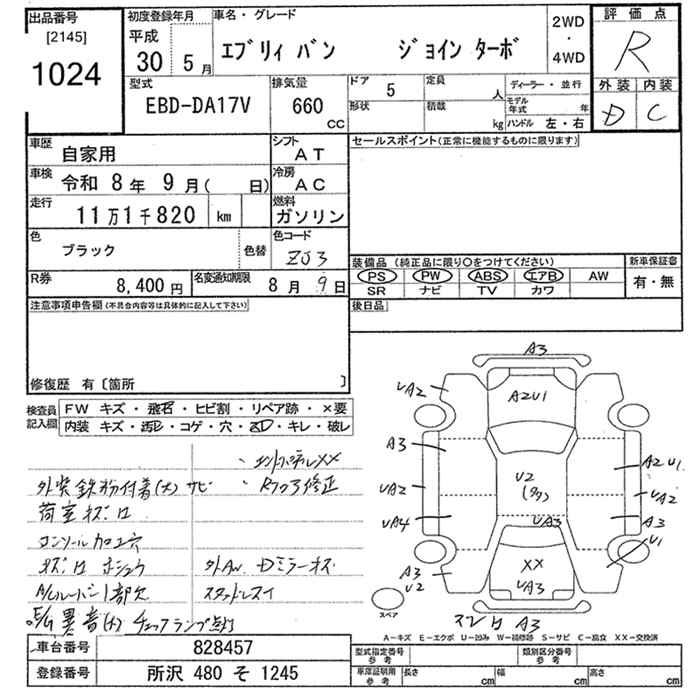 出品番号
[2145]
1024
初度登録年月
平成
30 5月
車名・グレード
エブリィ バン ジョイン ターボ
2WD
・
4WD
評価点
R
外装 内装
D C
型式
EBD-DA17V
排気量
660
CC
ドア 5
形状
定員 人
積載 kg
ディーラー・並行
モデル年式 年
ハンドル 左・右
車歴
自家用
シフト
AT
車検
令和 8年 9月( 日)
冷房
AC
走行
11万1千820 km
燃料
ガソリン
色
ブラック
色替
色コード
ZJ3
R券
8,400円
名変通知期限
8月 9日
セールスポイント(正常に機能するものに限ります)
装備品(純正品に限り○をつけてください)
PS PW ABS エアB AW
SR ナビ TV カワ
新車保証書
有・無
後日品
注意事項申告欄(不具合内容等は具体的に記入して下さい)
修復歴 有〔箇所 〕
検査員
記入欄
FW キズ・飛石・ヒビ割・リペア跡・×要
内装 キズ・汚レ・コゲ・穴・ズレ・キレ・破レ
・エンドパネルXX
外装鉄粉付着(大) サビ
・Rフロア修正
荷室キズ・凹
コンソール加工穴
キズ・凹 ホシュウ
外AW Dミラーキズ
A/Cルーバー1部欠
スタッドレス1
E/G異音(大) チェックランプ点灯
A3
UA2
A2U1
A3
A2U1
UA2
U2
(多タ)
UA2
UA4
UA3
A3
U1
XX
UA3
A3
U2
スペア
スレ凹 A3
A-キズ E-エクボ U-凹み W-補修跡 S-サビ C-腐食 XX-交換済
車台番号 828457
登録番号 所沢 480 そ 1245
型式指定番号
参考
類別区分番号
参考
車庫証明用
参考
長さ cm 幅 cm 高さ cm